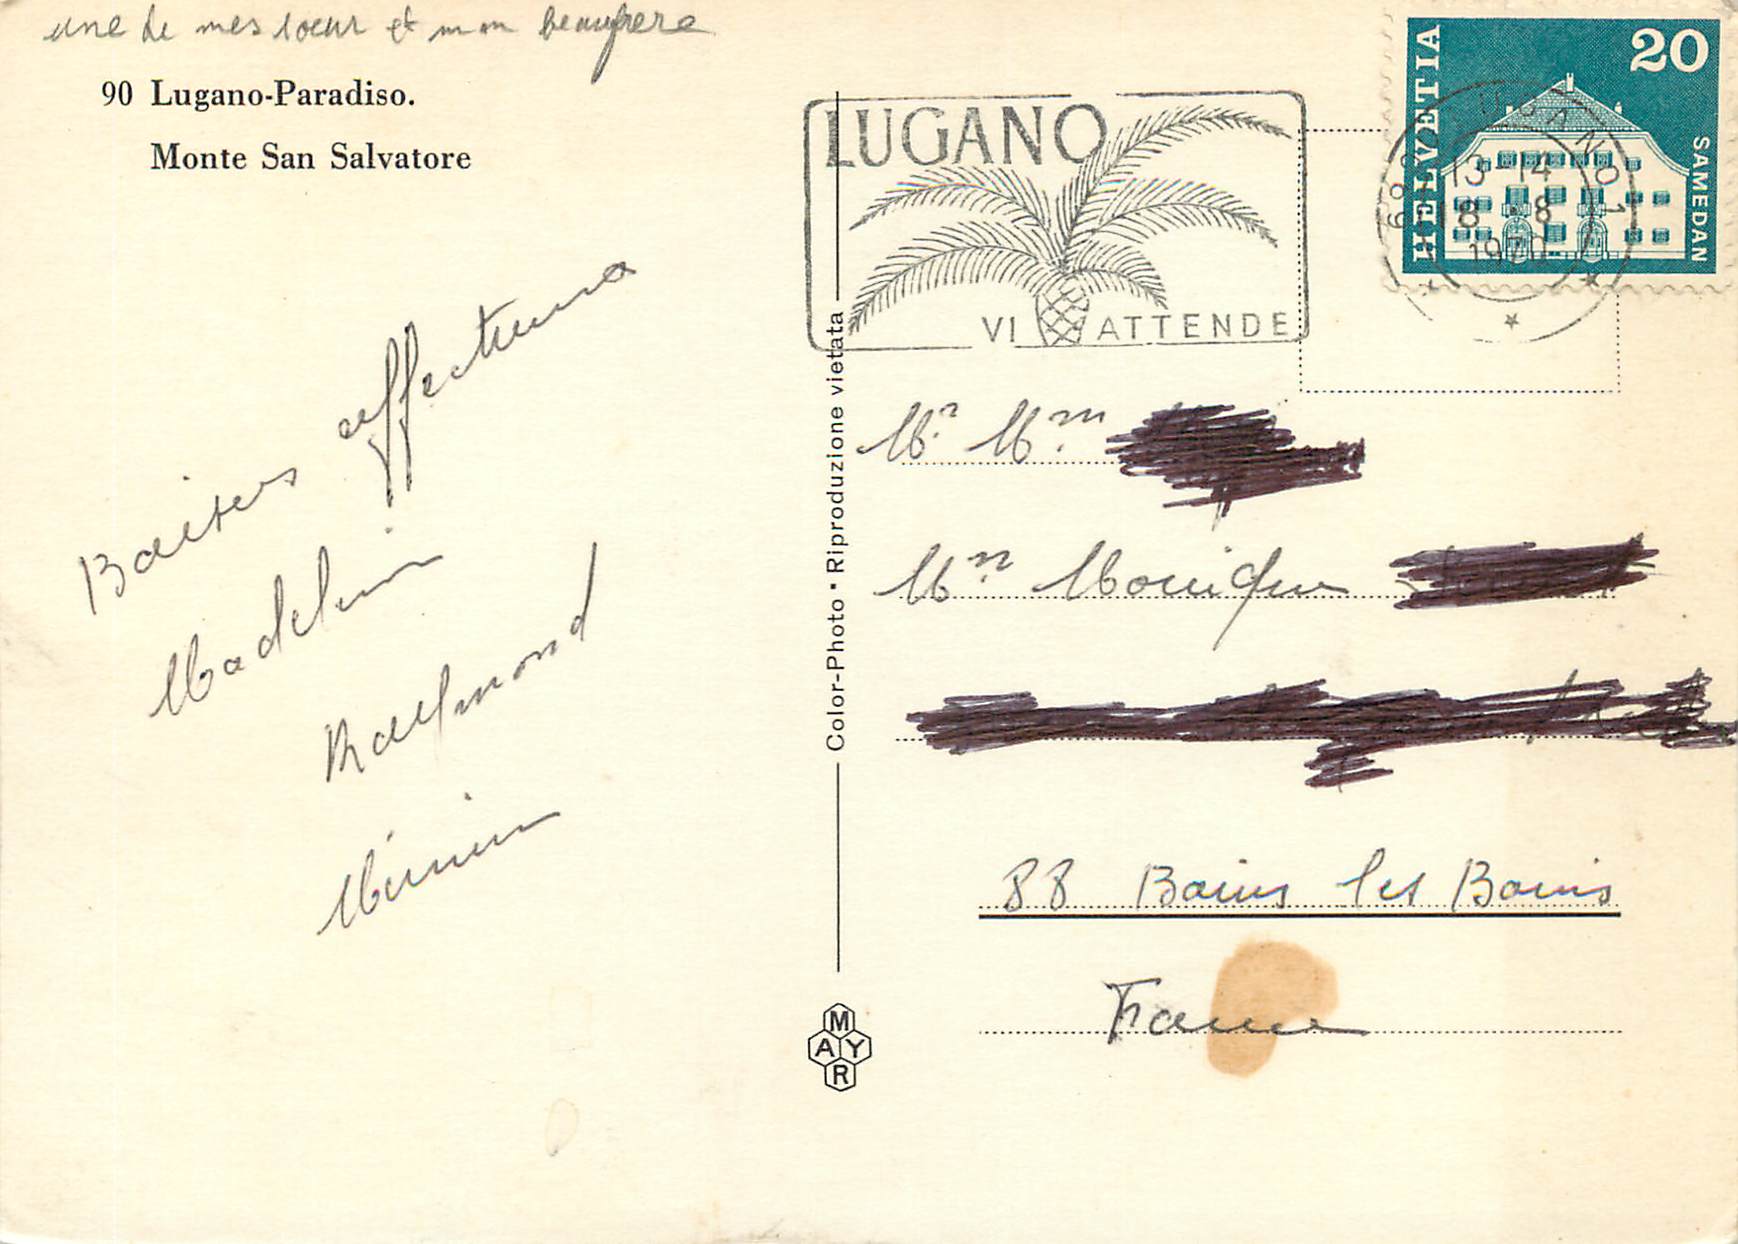 une de mes soeur et mon beaufrere
90 Lugano-Paradiso.
Monte San Salvatore
Baisers affectueux
Madeleine
Raymond
LUGANO
VI ATTENDE
HELVETIA
20
SAMEDAN
LUGANO 1
13-14
18.-8
1970
6900
Color-Photo • Riproduzione vietata
Mr Mm
Mr Monique
88 Bains les Bains
France
M
A Y
R